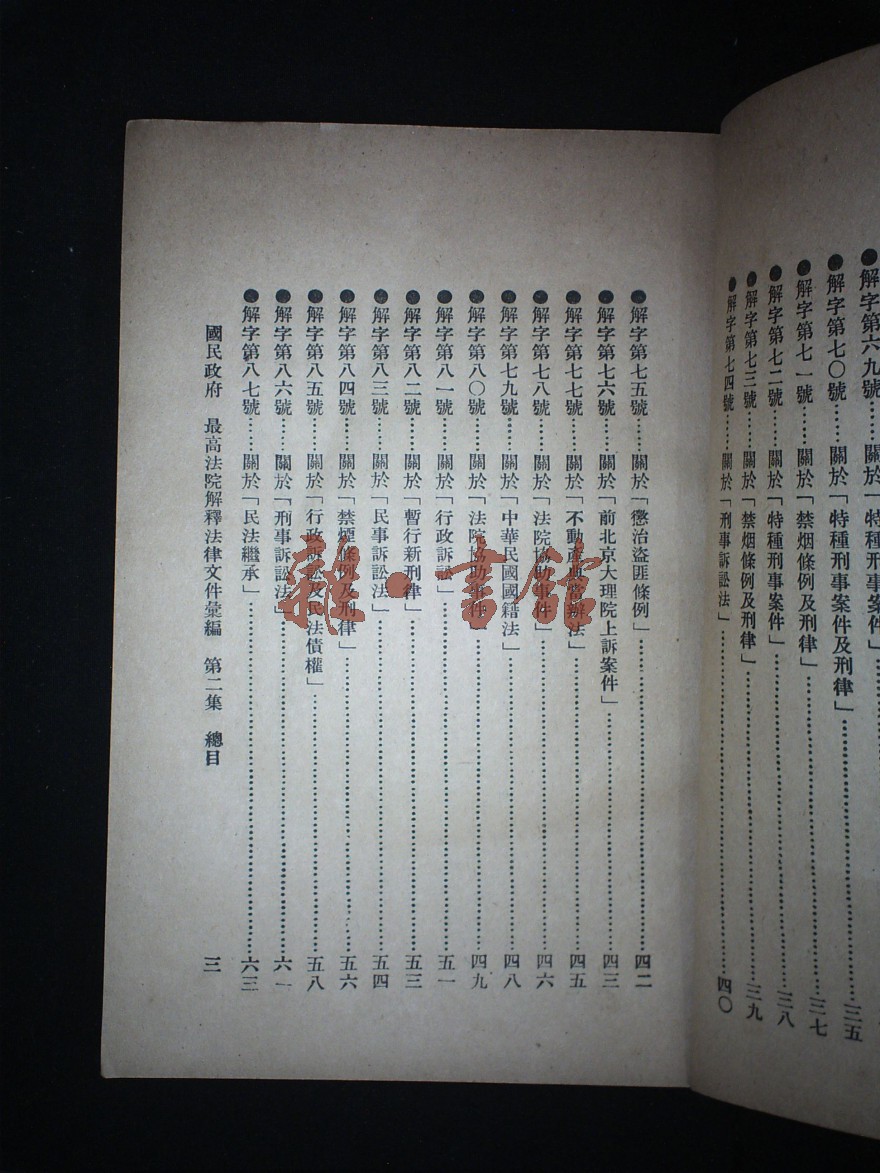 ●解字第六九號……關於「特種刑事案件」
●解字第七〇號……關於「特種刑事案件及刑律」……三五
●解字第七一號……關於「禁烟條例及刑律」……三七
●解字第七二號……關於「特種刑事案件」……三八
●解字第七三號……關於「禁烟條例及刑律」……三九
●解字第七四號……關於「刑事訴訟法」……四〇
●解字第七五號……關於「懲治盜匪條例」……四二
●解字第七六號……關於「前北京大理院上訴案件」……四三
●解字第七七號……關於「不動產典當辦法」……四五
●解字第七八號……關於「法院協助事件」……四六
●解字第七九號……關於「中華民國國籍法」……四八
●解字第八〇號……關於「法院協助事件」……四九
●解字第八一號……關於「行政訴訟」……五一
●解字第八二號……關於「暫行新刑律」……五三
●解字第八三號……關於「民事訴訟法」……五四
●解字第八四號……關於「禁煙條例及刑律」……五六
●解字第八五號……關於「行政訴訟及民法債權」……五八
●解字第八六號……關於「刑事訴訟法」……六一
●解字第八七號……關於「民法繼承」……六三
國民政府 最高法院解釋法律文件彙編 第二集 總目 三
雜·書館